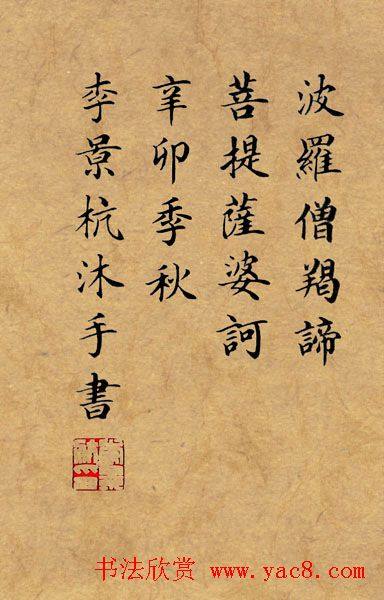 波羅僧羯諦
菩提薩婆訶
辛卯季秋
李景杭沐手書
书法欣赏 www.yac8.com